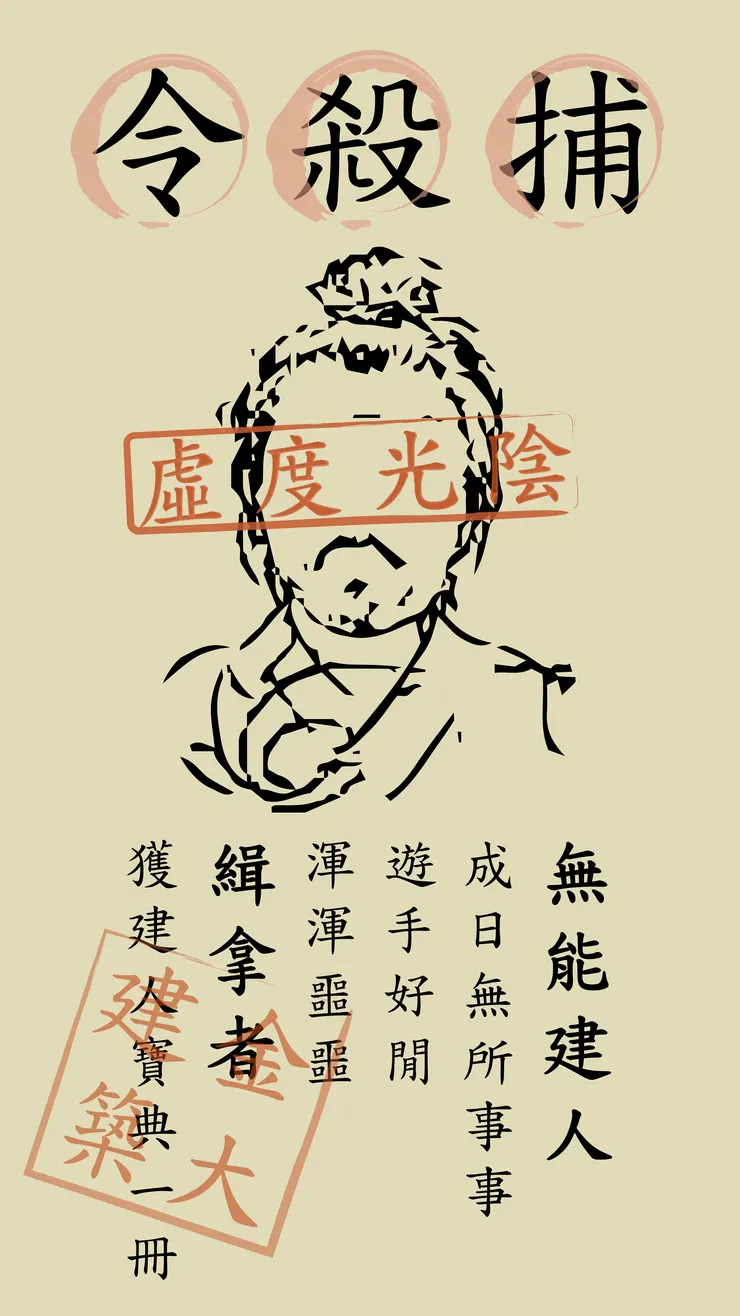 捕殺令
虛度光陰
無能建人
成日無所事事
遊手好閒
渾渾噩噩
緝拿者
獲建人寶典一冊
金大
建築